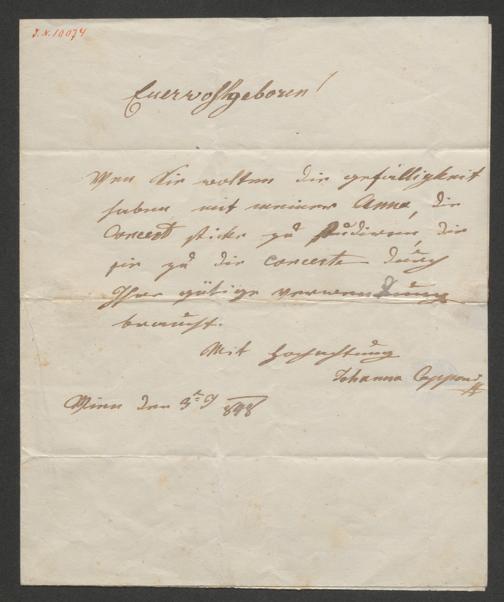 J.N. 10074
Euerwohlgeboren!
Wen Sie wolten die gefälligkeit
haben mit meiner Anna, die
Concert sticke zu studieren, die
sie zu die Concerte durch
Ihre gütige verwendung
braucht.
Mit Hochachtung
Johanna
Wien den 848